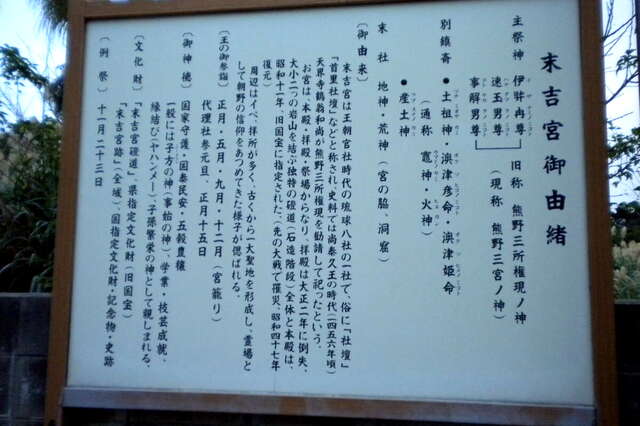 末吉宮御由緒
主祭神 伊弉冉尊 旧称 熊野三所権現ノ神
速玉男尊
事解男尊 (現称 熊野三宮ノ神)
別鎮斎 ●土祖神 澳津彦命 澳津姫命
(通称 竃神・火神)
●産土神
末社 地神・荒神(宮の脇、洞窟)
〔御由来〕
末吉宮は王朝官社時代の琉球八社の一社で、俗に「社壇」
「首里社壇」などと称され、史料では尚泰久王の時代(一四五六年頃)
天界寺鶴翁和尚が熊野三所権現を勧請して祀ったという。
お宮は、本殿・拝殿・祭場からなり、拝殿は大正二年に倒失、
大小二つの岩山を結ぶ独特の磴道(石造階段)全体と本殿は、
昭和十一年、旧国宝に指定された、先の大戦で罹災、昭和四十七年
復元。
周辺はイベ、拝所が多く、古くから一大聖地を形成し、霊場と
して朝野の信仰をあつめてきた様子が偲ばれる。
〔王の御参詣〕 正月・五月・九月・十二月(宮籠り)
代理社参元旦、正月十五日
〔御神徳〕 国家守護・国泰民安・五穀豊穰
一般には子方の神(事始の神)学業・技芸成就、
縁結び(ヤハンメー)子孫繁栄の神として親しまれる、
〔文化財〕 「末吉宮磴道」、県指定文化財(旧国宝)
「末吉宮跡」(全域)、国指定文化財・記念物・史跡
〔例祭〕 十一月二十三日